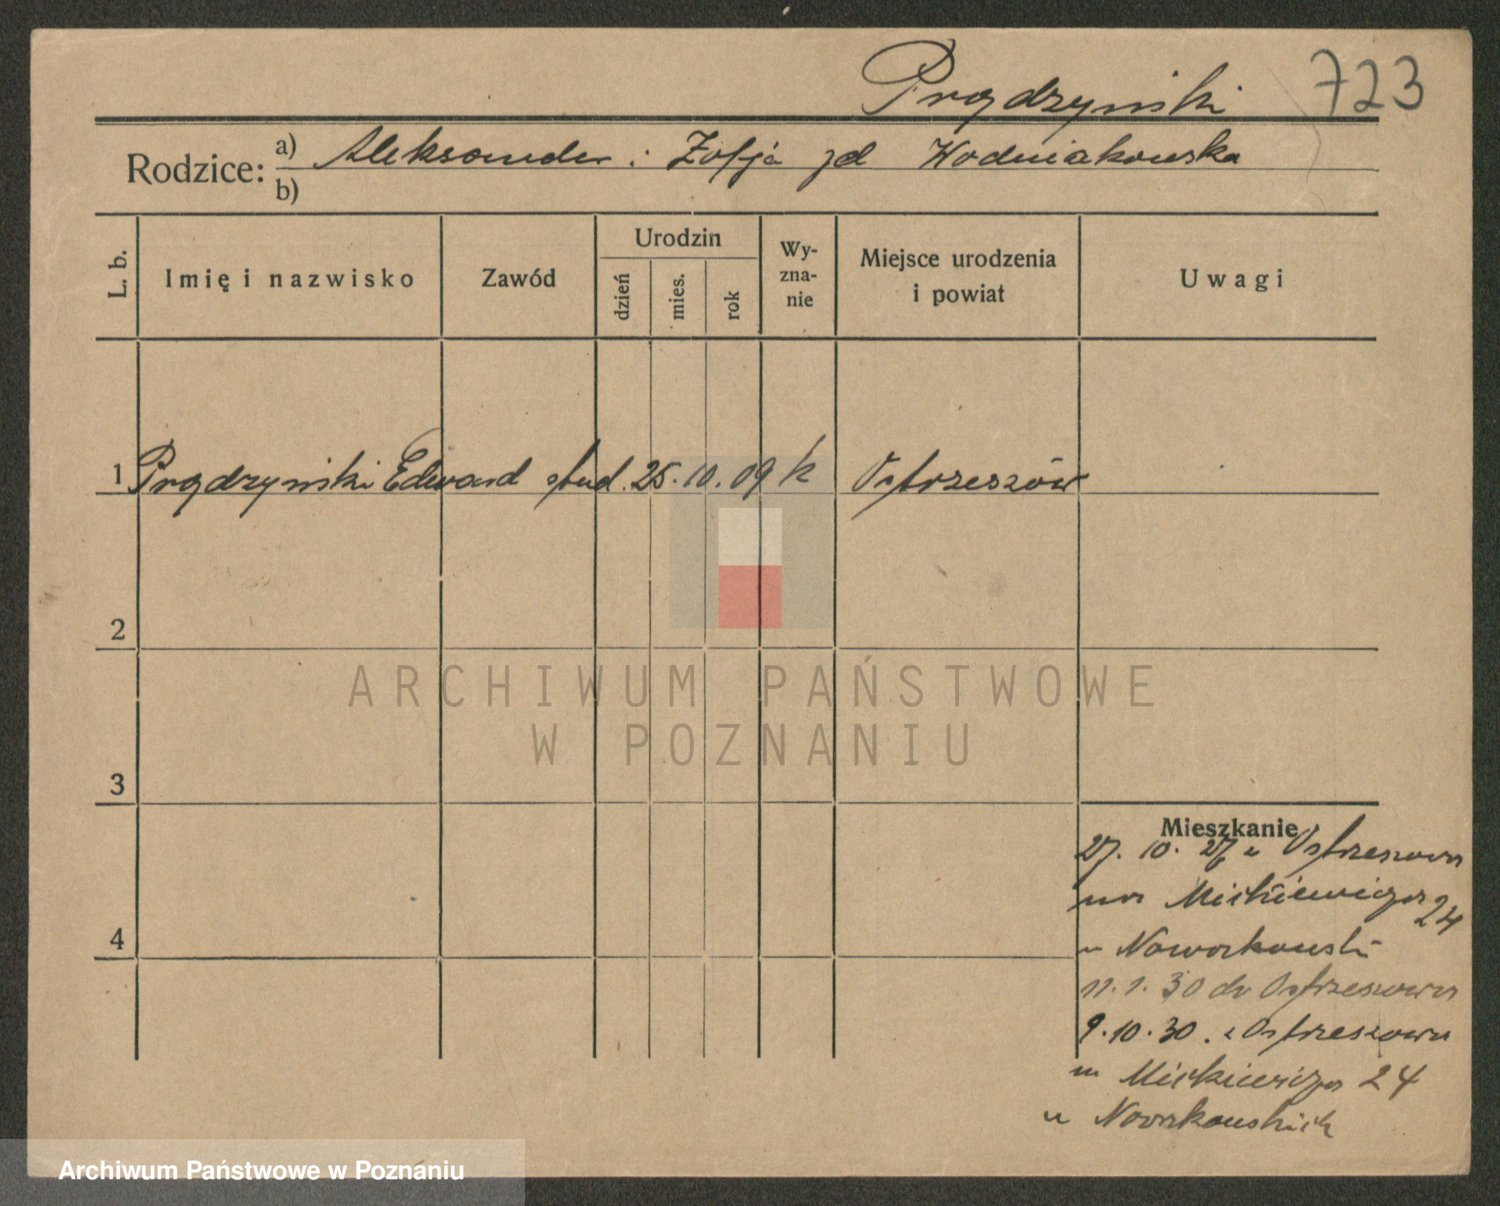 Prądzyński 723
Rodzice: a) Aleksander i Zofja zd Wodniakowska
b)
L. b. Imię i nazwisko Zawód Urodzin dzień mies. rok Wy-zna-nie Miejsce urodzenia i powiat Uwagi
1 Prądzyński Edward stud. 25. 10. 09 k Ostrzeszów
2
ARCHIWUM PAŃSTWOWE
W POZNANIU
3
Mieszkanie
27. 10. 27 z Ostrzeszowa
na Mickiewicza 24
4
u Nowakowski
11. 1. 30 do Ostrzeszowa
9. 10. 30. z Ostrzeszowa
Mickiewicza 24
u Nowakowskich
Archiwum Państwowe w Poznaniu